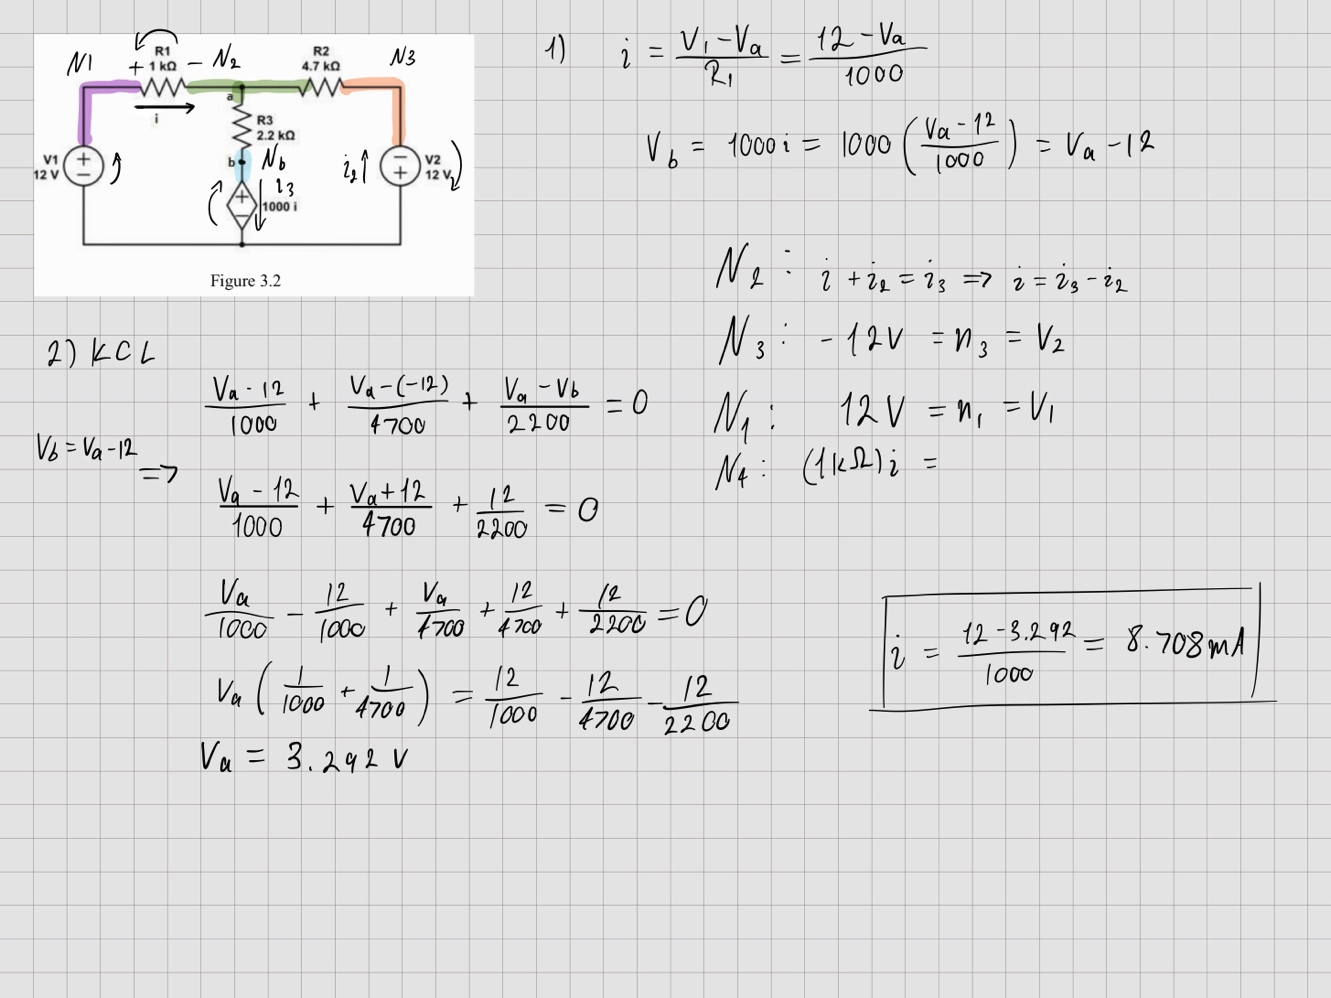 N1
R1
1 kΩ
+ - N2
R2
4.7 kΩ
N3
a
i
R3
2.2 kΩ
b Nb
V1
12 V
+
−
i3
+
−
1000 i
i2
−
+
V2
12 V
Figure 3.2
1) i = (V1 − Va)/R1 = (12 − Va)/1000
Vb = 1000i = 1000 ((Va − 12)/1000) = Va − 12
N2 : i + i2 = i3 => i = i3 − i2
N3 : −12V = n3 = V2
N1 : 12V = n1 = V1
N4 : (1kΩ)i =
2) KCL
(Va − 12)/1000 + (Va − (−12))/4700 + (Va − Vb)/2200 = 0
Vb = Va − 12
=>
(Va − 12)/1000 + (Va + 12)/4700 + 12/2200 = 0
Va/1000 − 12/1000 + Va/4700 + 12/4700 + 12/2200 = 0
Va (1/1000 + 1/4700) = 12/1000 − 12/4700 − 12/2200
Va = 3.292 V
i = (12 − 3.292)/1000 = 8.708mA